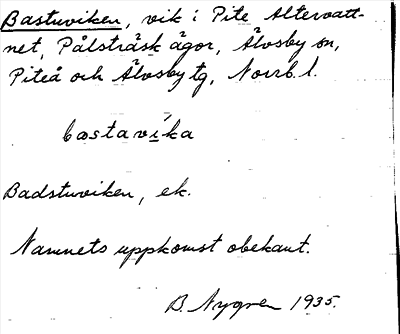 Bastuviken, vik i Pite Altervatt-
net, Pålsträsk ägor, Älvsby sn,
Piteå och Älvsby tg, Norrb. l.
bastavíka
Badstuviken, ek.
Namnets uppkomst obekant.
B. Nygren 1935.